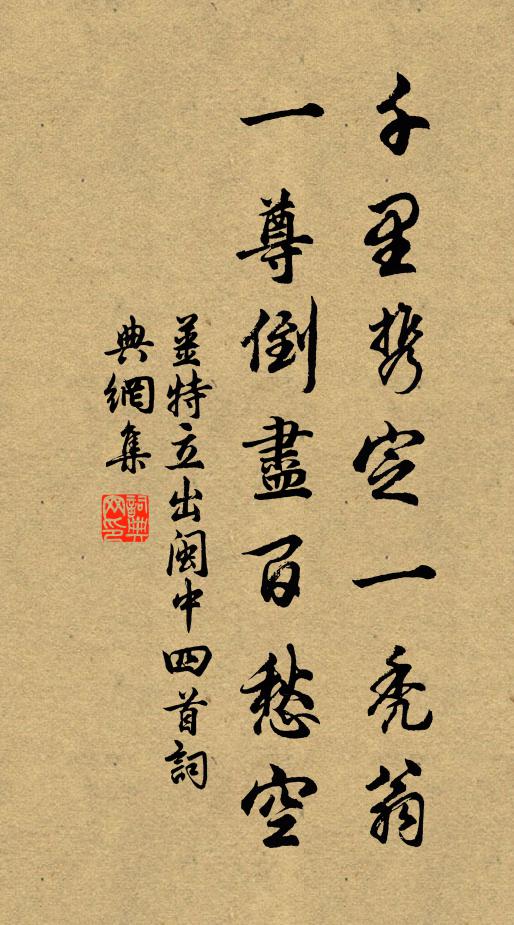 千里携定一禿翁
一尊倒盡百愁空
薑特立出閩中四首詞
典網集
詞典
网印